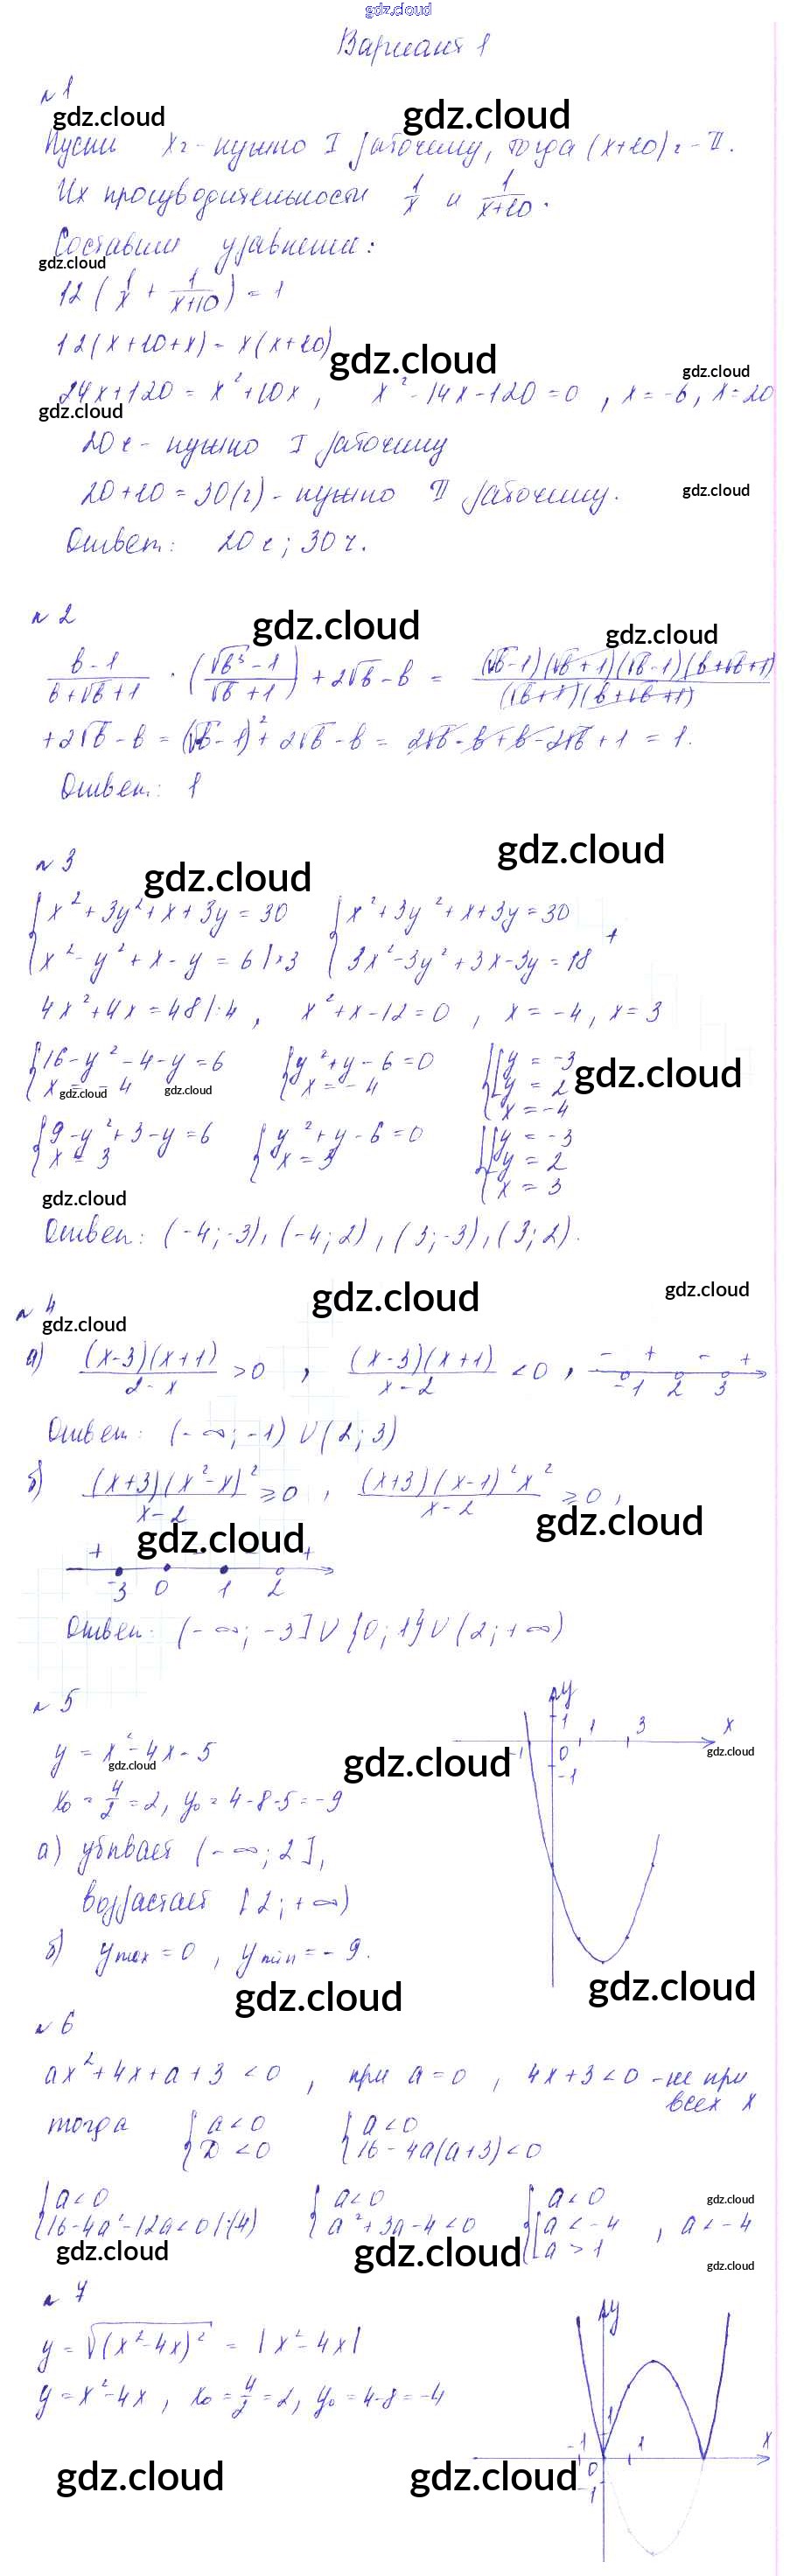 gdz.cloud
Вариант 1
№ 1
gdz.cloud gdz.cloud
Пусть x ч - нужно I рабочему, тогда (x+10) ч - II.
Их производительности 1/x и 1/(x+10).
Составим уравнение:
gdz.cloud
12 (1/x + 1/(x+10)) = 1
12(x+10+x) = x(x+10)
gdz.cloud gdz.cloud
24x+120 = x²+10x, x²-14x-120=0, x=-6, x=20
gdz.cloud
20 ч - нужно I рабочему
20+10=30(ч) - нужно II рабочему.
gdz.cloud
Ответ: 20 ч; 30 ч.
№ 2
gdz.cloud gdz.cloud
(b-1)/(b+√b+1) · ((√b³-1)/(√b+1)) + 2√b - b = ((√b-1)(√b+1)(√b-1)(b+√b+1))/((√b+1)(b+√b+1))
+2√b - b = (√b-1)² + 2√b - b = 2√b - b + b - 2√b + 1 = 1.
Ответ: 1
№ 3
gdz.cloud gdz.cloud
{x²+3y²+x+3y=30 {x²+3y²+x+3y=30
{x²-y²+x-y=6 |·3 {3x²-3y²+3x-3y=18 +
4x²+4x=48 |:4, x²+x-12=0, x=-4, x=3
{16-y²-4-y=6 {y²+y-6=0 {[y=-3
{x=-4 {x=-4 [y=2
gdz.cloud gdz.cloud gdz.cloud
{x=-4
{9-y²+3-y=6 {y²+y-6=0 {[y=-3
{x=3 {x=3 [y=2
{x=3
gdz.cloud
Ответ: (-4;-3), (-4;2), (3;-3), (3;2).
gdz.cloud gdz.cloud
№ 4
gdz.cloud
а) ((x-3)(x+1))/(2-x) >0, ((x-3)(x+1))/(x-2) <0, - + - +
-1 2 3
Ответ: (-∞;-1) ∪ (2;3)
б) ((x+3)(x²-x)²)/(x-2) ≥0, ((x+3)(x-1)²x²)/(x-2) ≥0,
gdz.cloud gdz.cloud
+ - +
-3 0 1 2
Ответ: (-∞;-3] ∪ {0;1} ∪ (2;+∞)
№ 5
y = x²-4x-5
gdz.cloud gdz.cloud gdz.cloud
x₀ = 4/2 = 2, y₀ = 4-8-5=-9
y 1 1 3 x -1 0 -1
а) убывает (-∞;2],
возрастает [2;+∞)
б) y max = 0, y min = -9.
gdz.cloud gdz.cloud
№ 6
ax²+4x+a+3<0, при a=0, 4x+3<0 - не при
всех x
тогда {a<0 {a<0
{D<0 {16-4a(a+3)<0
{a<0 {a<0 {a<0
gdz.cloud
{16-4a²-12a<0 |:(4) {a²+3a-4<0 {[a<-4, a<-4
[a>1
gdz.cloud gdz.cloud gdz.cloud
№ 7
y = √(x²-4x)² = |x²-4x|
y = x²-4x, x₀ = 4/2 = 2, y₀ = 4-8=-4
y 1 -1 1 x 0 -1
gdz.cloud gdz.cloud